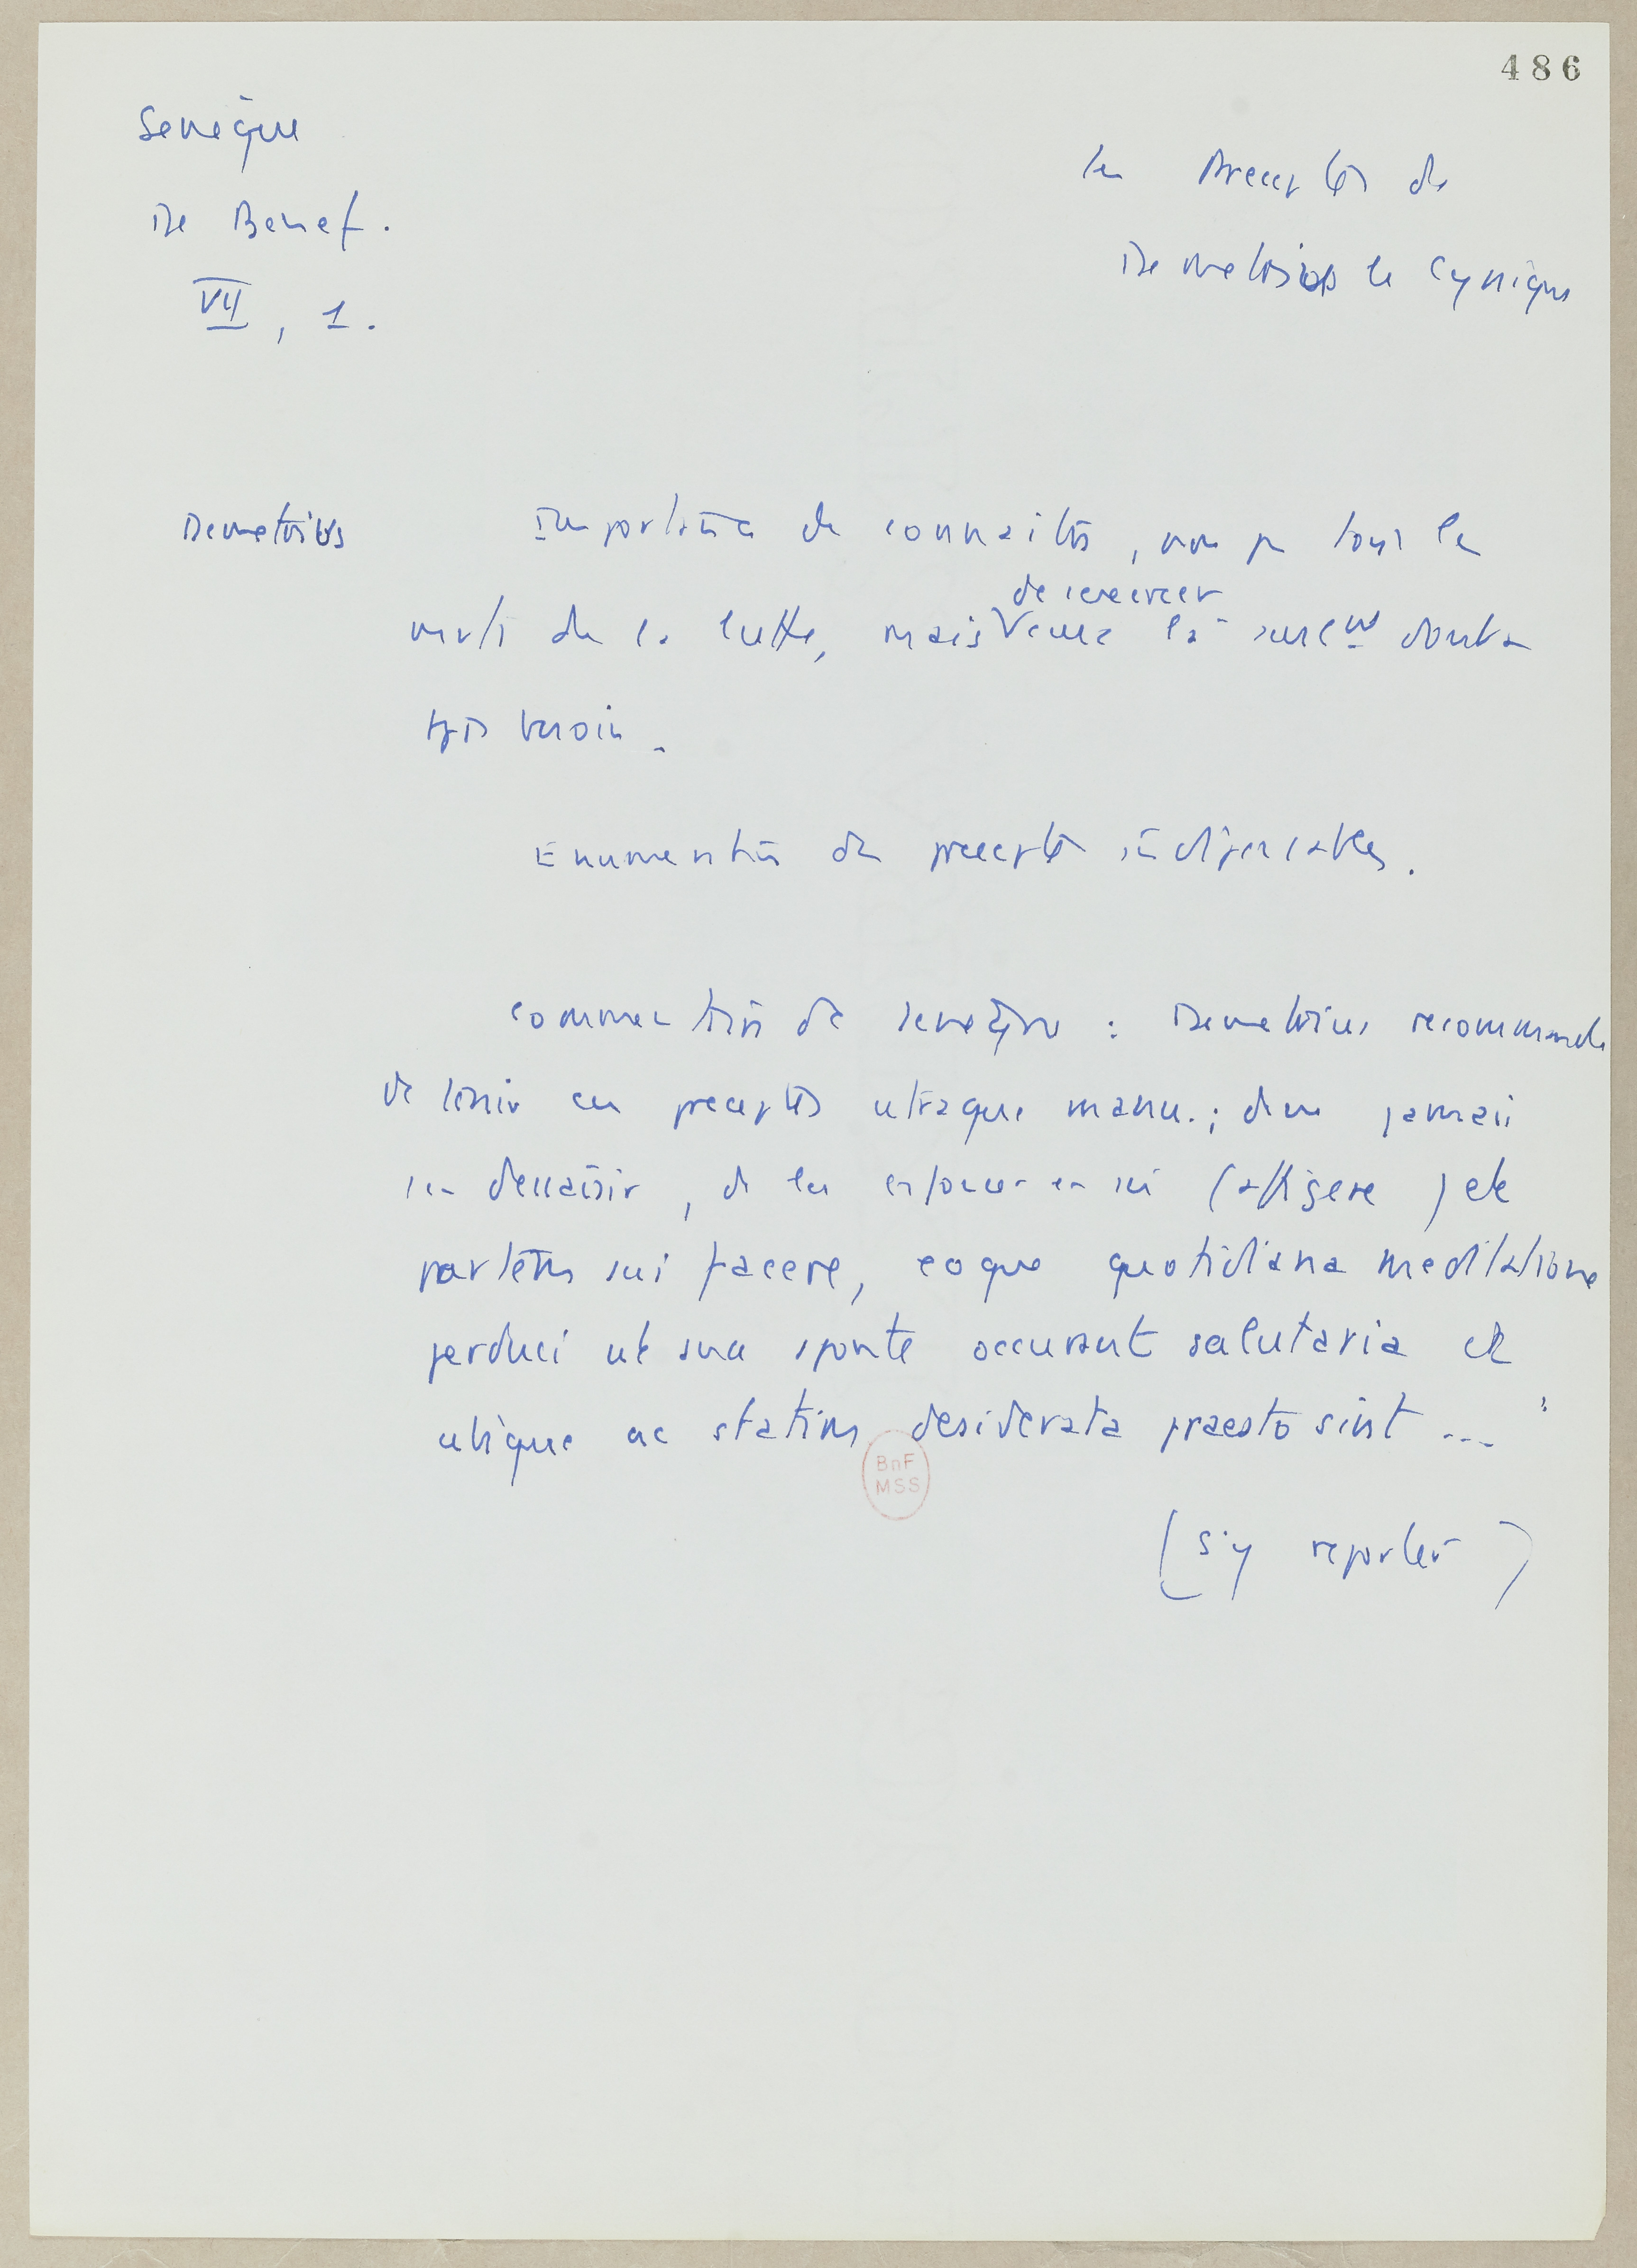 486
Sénèque
De Benef.
VII, 1.
Les Preceptes de
Demetrios le Cynique
Demetrius
Importance de connaitre, non pas tous les
de s'exercer
de la lutte, mais ceux là seulemt dont on
besoin.
Enumeration des preceptes indispensables.
Commentaire de Seneque : Demetrius recommande
de tenir ces preceptes utraque manu. ; de ne jamais
s'en dessaisir, de les enfoncer en soi (affigere) et
partem sui facere, eoque quotidiana meditatione
perduci ut sua sponte occurrant salutaria et
ubique ac statim desiderata praesto sint ... "
BnF
MSS
(s'y reporter)